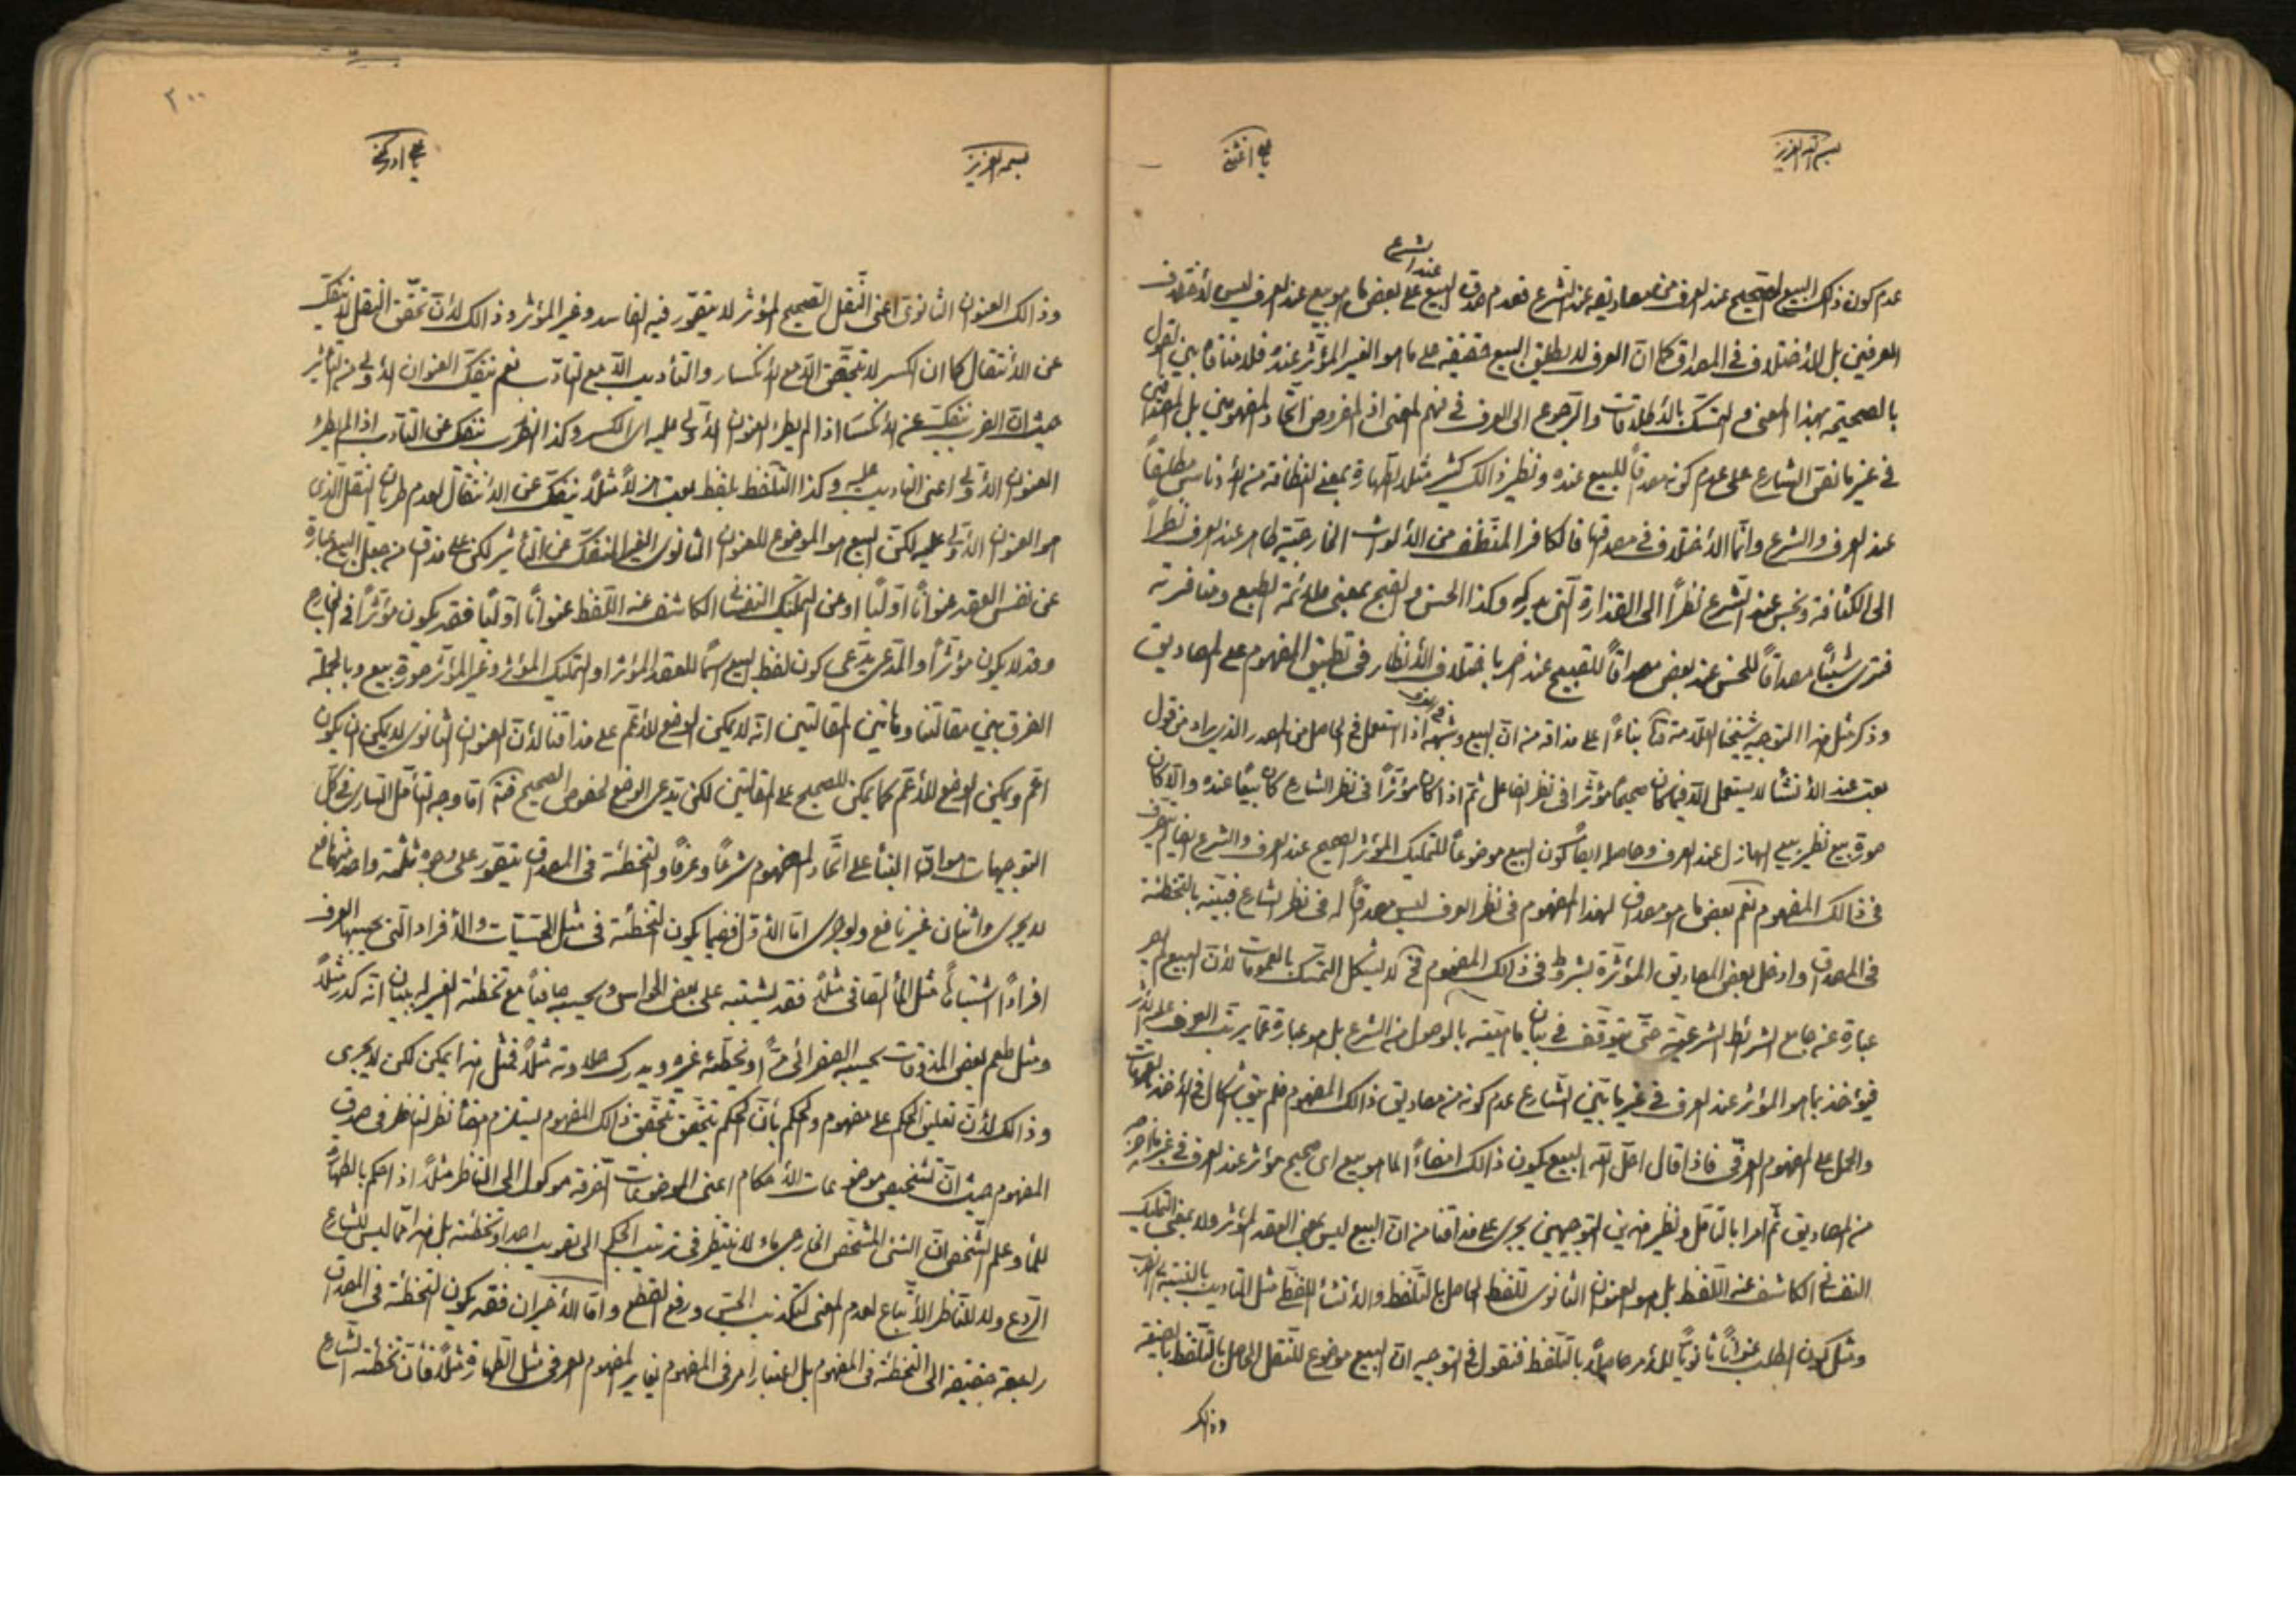 بسم الله العزيز
يا علي اغثني
عند الشرع
عدم كون ذلك البيع الصحيح عند العرف من مصاديقه عند الشرع فعدم صدق البيع على بعض ما هو بيع عند العرف ليس لاختلاف
العرفين بل للأختلاف في المصداق كما ان العرف لا يطلق البيع حقيقة على ما هو الغير المؤثر عنده فلا منافاة بين القول
بالصحيحة بهذا المعنى والتمسك بالأطلاقات والرجوع الى العرف في فهم المعنى اذ المفروض اتحاد المفهومين بل المصداقين
في غير ما نص الشارع على عدم كونه مصداقاً للبيع عنده ونظير ذالك كثير مثلا الطهارة بمعنى النظافة من الأدناس مطلقاً
عند العرف والشرع وانما الأختلاف في مصداقها فالكافر المتنظف من الألواث الخارجية طاهر عند العرف نظراً
الى الكثافة ونجس عند الشرع نظراً الى القذارة التي يدركه وكذا الحسن والقبح بمعنى ملائمة الطبع ومنافرته
فترى شيئاً مصداقاً للحسن عند بعض مصداقاً للقبيح عند اخر باختلاف الأنظار في تطبيق المفهوم على المصاديق
وذكر مثل هذا التوجيه شيخنا العلامة بناءً على مذاقه من ان البيع وشبهه اذا استعمل في الحاصل من المصدر الذي يراد من قول
بعت عند الأنشاء لا يستعمل الا فيما كان صحيحاً مؤثراً في نظر الفاعل ثم اذا كان مؤثراً في نظر الشارع كان بيعاً عنده والا كان
صورة بيع نظير بيع الهازل عند العرف وحاصله ايضاً كون البيع موضوعاً للتمليك المؤثر الصحيح عند العرف والشرع
في ذالك المفهوم نعم بعض ما هو مصداق لهذا المفهوم في نظر العرف ليس مصداقاً له في نظر الشارع فبينه بالتخطئة
في المصداق وادخل بعض المصاديق المؤثرة بشروط في ذالك المفهوم فح لا يشكل التمسك بالعمومات لأن البيع
عبارة عن جامع الشرائط الشرعية حتى يتوقف في بيان ماهيته بالوصول من الشرع بل هو عبارة عما يرتب العرف عليه الأثر
فيؤخذ بما هو المؤثر عند العرف في غير ما بين الشارع عدم كونه من مصاديق ذالك المفهوم فلم يبق اشكال في الأخذ بالعمومات
والحمل على المفهوم العرفي فاذا قال احل الله البيع يكون ذالك امضاءً لما هو بيع اى صحيح مؤثر عند العرف في غير ما اخرجه
من المصاديق ثم امرا بالتأمل ونظير هذين التوجيهين يجرى على مذاقنا من ان البيع ليس بمعنى العقد المؤثر ولا بمعنى التمليك
النفساني الكاشف عنه اللفظ بل هو العنوان الثانوى للفظ الحاصل بالتلفظ والأنشاء اللفظي مثل التأديب بالنسبة الى الضرب
ومثل كون الطلب عنواناً ثانوياً للأمر حاصلاً بالتلفظ فنقول في التوجيه ان البيع موضوع للنقل الحاصل بالتلفظ بالصيغة
وذالك
٢٠٠
بسمه العزيز
يا علي ادركني
وذالك العنوان الثانوى اعنى النقل الصحيح المؤثر لا يتصور فيه الفاسد وغير المؤثر وذالك لأن تحقق النقل لا ينفك
عن الأنتقال كما ان الكسر لا يتحقق الا مع الأنكسار والتأديب الا مع التأدب نعم ينفك العنوان الأولى من التأثير
حيث ان الضرب ينفك عن الأنكسار اذا لم يطرء العنوان الأولى عليه اى الكسر وكذا الضرب ينفك عن التأدب اذا لم يطرء
العنوان الأولى اعنى التأديب عليه وكذا التلفظ بلفظ بعت هزلاً مثلاً ينفك عن الأنتقال لعدم طريان النقل الذي
هو العنوان الأولى عليه لكن البيع هو الموضوع للعنوان الثانوى الغير المنفك عن التأثير لكن على مذاق من جعل البيع عبارة
عن نفس العقد عنواناً اولياً او عن التمليك النفساني الكاشف عنه اللفظ عنواناً اولياً فقد يكون مؤثراً في الخارج
وقد لا يكون مؤثراً والمدعى يدعى كون لفظ البيع اسماً للعقد المؤثر او التمليك المؤثر وغير المؤثر صورة بيع وبالجملة
الفرق بين مقالتنا وهاتين المقالتين انه لا يمكن الوضع للأعم على مذاقنا لأن العنوان الثانوى لا يمكن ان يكون
اعم ويمكن الوضع للأعم كما يمكن للصحيح على المقالتين لكن يدعى الوضع لخصوص الصحيح اما وجه التأمل السارى في كل
التوجيهات هو ان البناء على اتحاد المفهوم شرعاً وعرفاً والتخطئة في المصداق يتصور على وجوه ثلثة واحد منها نافع
لا يجرى واثنان غير نافع ولو جرى اما الأول ففيما يكون التخطئة في مثل الحسيات والأفراد التي يحسبها العرف
افراداً اشتباهاً مثل الماء الصافي مثلاً فقد يشتبه على بعض الحواس ويحسبه صافياً مع تخطئة الغير له ببيان انه كدر مثلاً
ومثل طعم بعض المذوقات يحسبه الصفراني مراً ويخطئه غيره ويدرك حلاوته مثلاً فمثل هذا يمكن لكن لا يجرى
وذالك لأن تعليق الحكم على مفهوم والحكم بأن الحكم يتحقق بتحقق ذالك المفهوم يستلزم امضاء نظر الناظر في صدق
المفهوم حيث ان تشخيص موضوعات الأحكام اعنى الموضوعات الصرفة موكول الى الناظر مثلاً اذا حكم بالطهارة
للماء وعلم الشخص ان الشئ المشخص الخارجى ماء لا ينتظر في ترتيب الحكم الى تصويب احد او تخطئته بل هذا مما ليس للشارع
الردع ولا للناظر الأتباع لعدم المعنى لتكذيب الحس ورفع القطع واما الأخيران فقد يكون التخطئة في المصداق
راجعة حقيقة الى التخطئة في المفهوم بل اعتبار امر في المفهوم يغاير المفهوم العرفي مثل الطهارة مثلاً فأن تخطئة الشارع